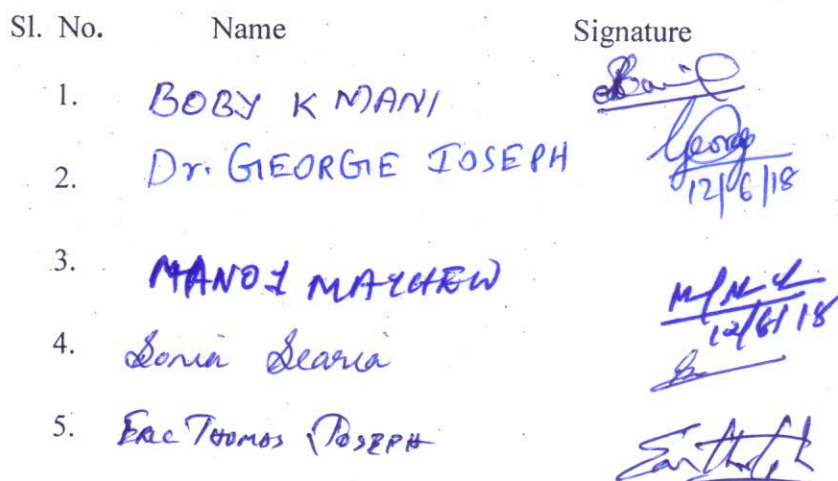 Sl. No. Name Signature
1. BOBY K MANI
2. Dr. GEORGE JOSEPH George
12/6/18
3. MANOJ MATHEW
12/6/18
4. Sonia Scaria
5. Eric Thomas Joseph